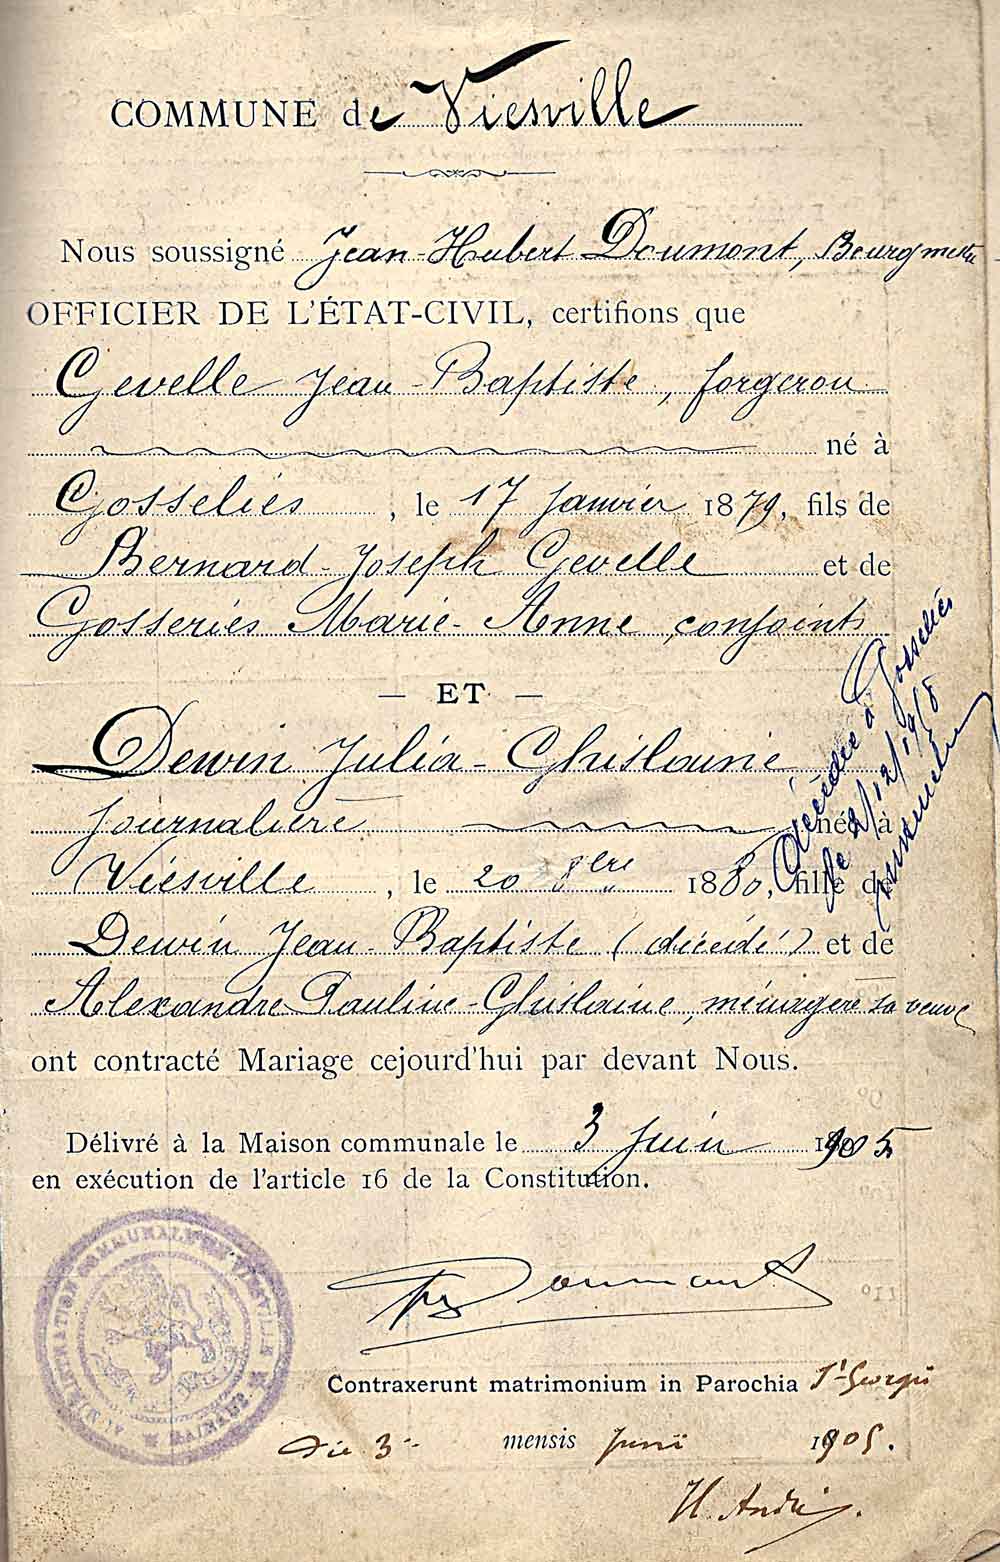 COMMUNE de Viesville
Nous soussigné Jean-Hubert Doumont, Bourgmetre
OFFICIER DE L'ÉTAT-CIVIL, certifions que
Gevelle Jean-Baptiste, forgeron
né à
Gosselies, le 17 Janvier 1879, fils de
Bernard-Joseph Gevelle et de
Gosseries Marie-Anne, conjoints
— ET —
Dewin Julia-Ghislaine
Journalière née à
Viesville, le 20 8bre 1880, fille de
Dewin Jean-Baptiste (décédé) et de
Alexandre Pauline-Ghislaine, ménagère sa veuve
ont contracté Mariage cejourd'hui par devant Nous.
Délivré à la Maison communale le 3 Juin 1905
en exécution de l'article 16 de la Constitution.
décédée à Gosselies
le 2/12/1918
ADMINISTRATION COMMUNALE DE VIESVILLE
HAINAUT
Doumont
Contraxerunt matrimonium in Parochia St-Georgii
die 3 mensis Junii 1905.
H. André